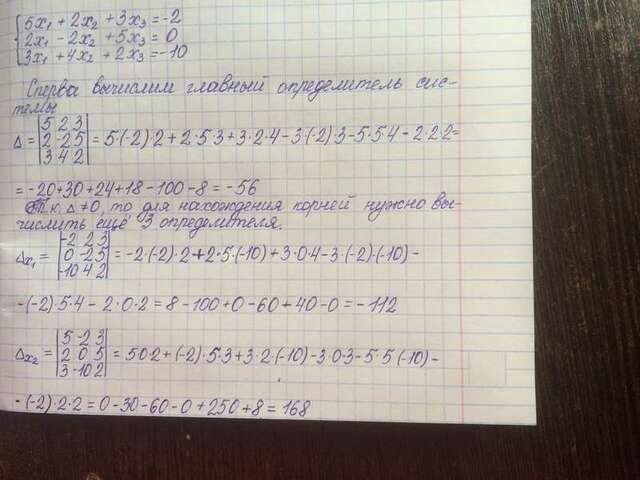 5x₁ + 2x₂ + 3x₃ = -2
2x₁ - 2x₂ + 5x₃ = 0
3x₁ + 4x₂ + 2x₃ = -10
Сперва вычислим главный определитель сис-
темы
Δ = |5 2 3; 2 -2 5; 3 4 2| = 5·(-2)·2 + 2·5·3 + 3·2·4 - 3·(-2)·3 - 5·5·4 - 2·2·2 =
= -20 + 30 + 24 + 18 - 100 - 8 = -56
Т.к. Δ ≠ 0, то для нахождения корней нужно вы-
числить ещё 3 определителя.
Δx₁ = |-2 2 3; 0 -2 5; -10 4 2| = -2·(-2)·2 + 2·5·(-10) + 3·0·4 - 3·(-2)·(-10) -
- (-2)·5·4 - 2·0·2 = 8 - 100 + 0 - 60 + 40 - 0 = -112
Δx₂ = |5 -2 3; 2 0 5; 3 -10 2| = 5·0·2 + (-2)·5·3 + 3·2·(-10) - 3·0·3 - 5·5·(-10) -
- (-2)·2·2 = 0 - 30 - 60 - 0 + 250 + 8 = 168